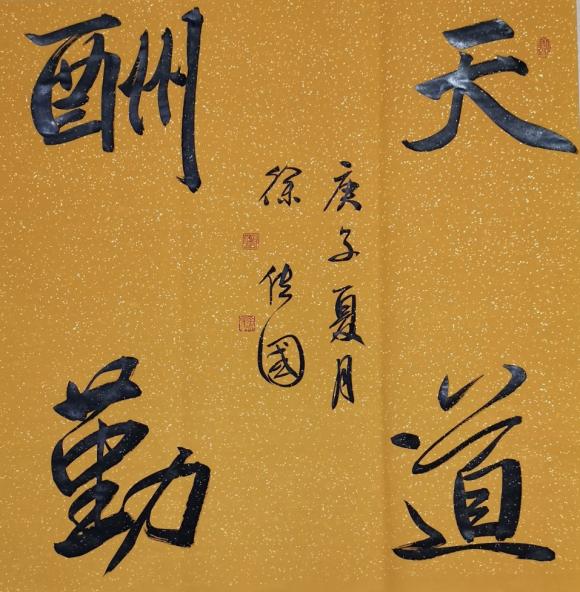 天道
酬勤
庚子夏月
徐传国